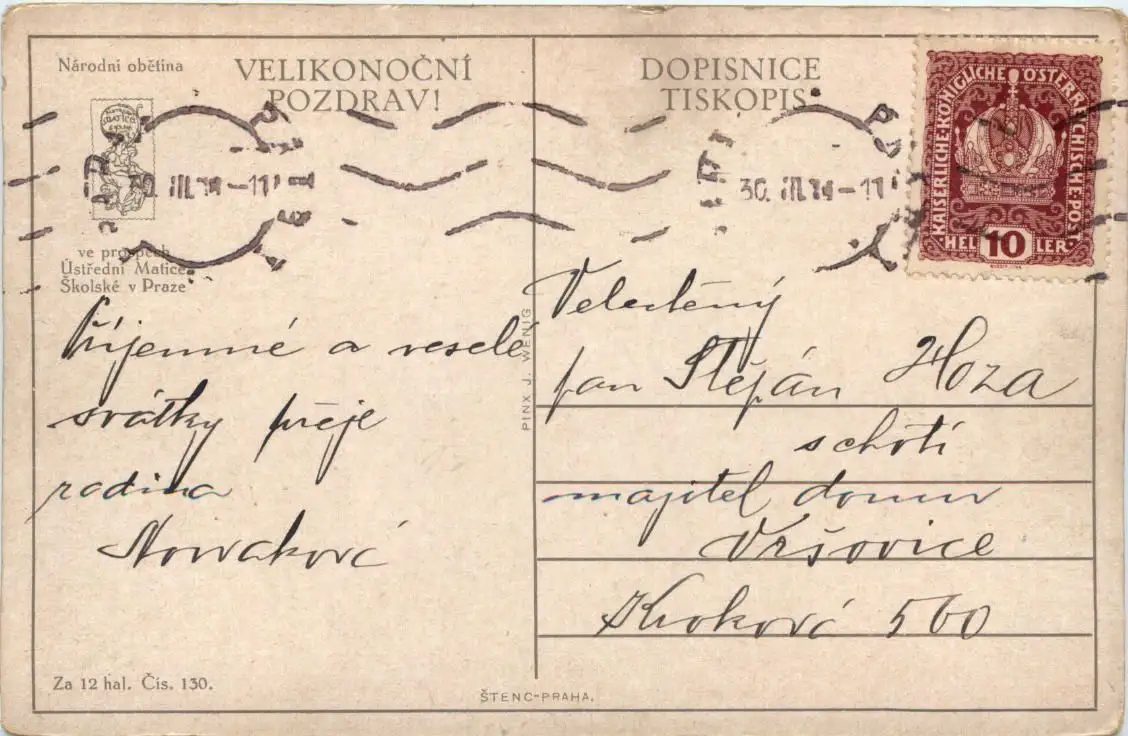 Národní obětina
VELIKONOČNÍ
POZDRAV!
ve prospěch
Ústřední Matice
Školské v Praze
Příjemné a veselé
svátky přeje
rodina
Nowaková
Za 12 hal. Čís. 130.
PINX J. WENIG
ŠTENC-PRAHA.
DOPISNICE
TISKOPIS.
30. III. 18 -11
KAISERLICHE KÖNIGLICHE ÖSTERREICHISCHE POST
HEL 10 LER
Veletěný
pan Štěpán Hoza
s chotí
majitel domu
Vršovice
Krokova 560